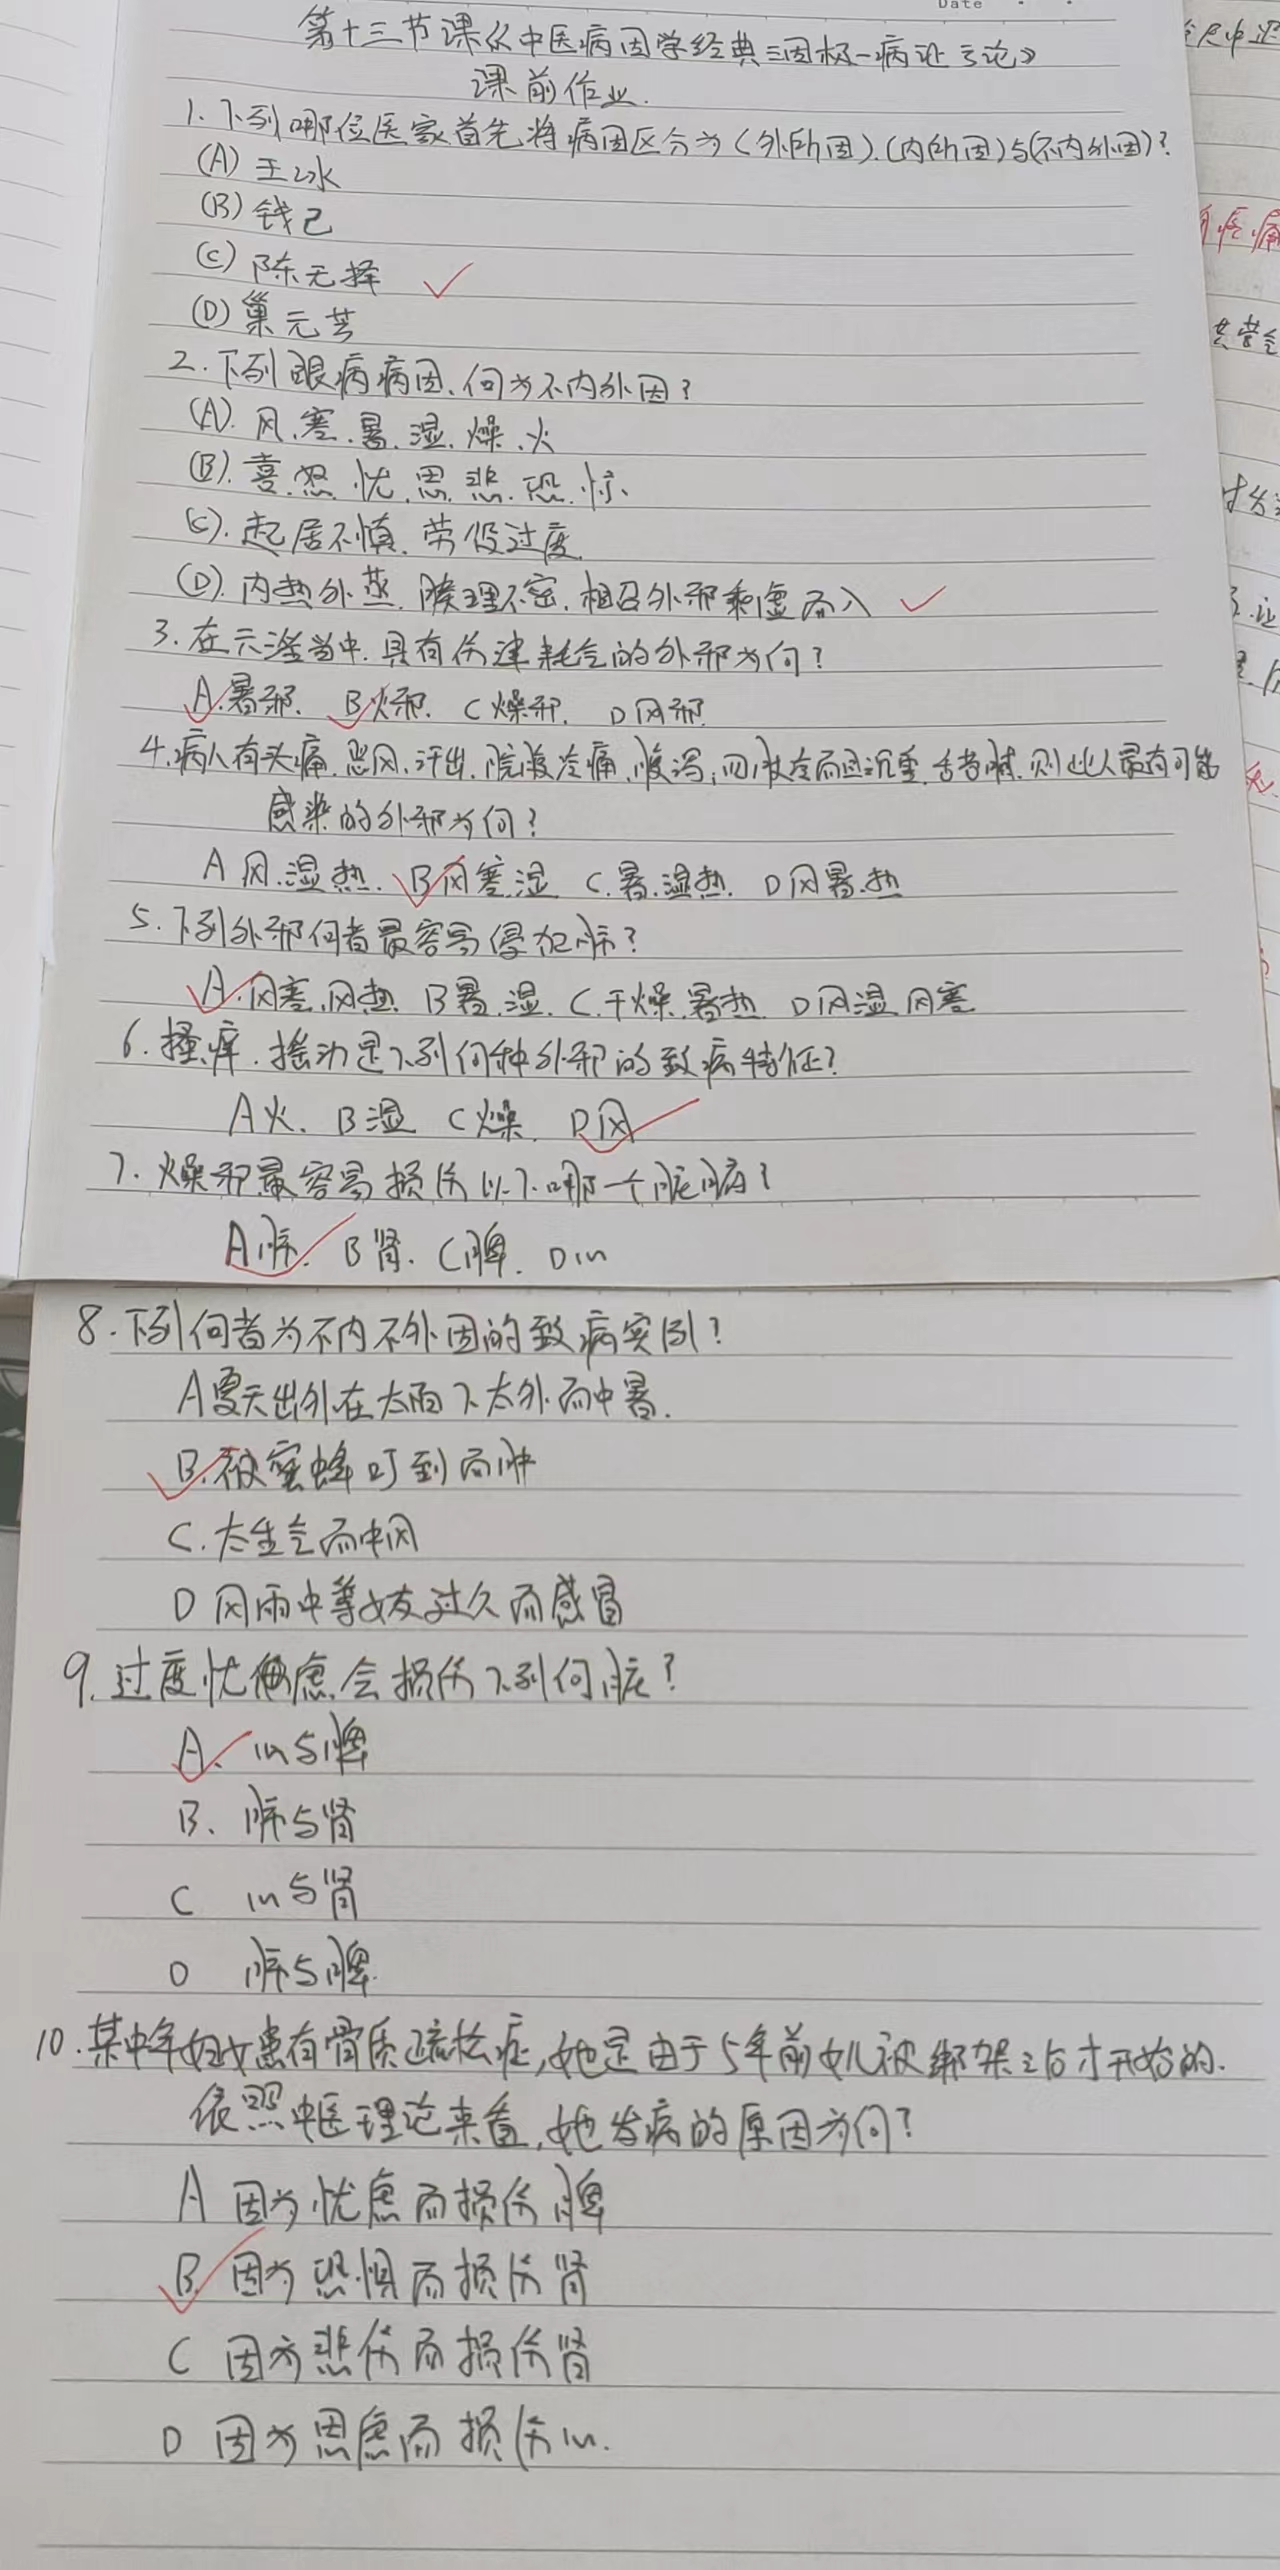 Date
第十三节课《中医病因学经典三因极一病证方论》
课前作业.
1.下列哪位医家首先将病因区分为(外所因).(内所因)与(不内外因)?
(A) 王冰
(B) 钱己
(C) 陈无择
(D) 巢元芳
2.下列眼病病因.何为不内外因?
(A).风.寒.暑.湿.燥.火
(B).喜.怒.忧.思.悲.恐.惊
(C).起居不慎.劳役过度
(D).内热外蒸.腠理不密.相召外邪乘虚而入
3.在六淫当中.具有伤津耗气的外邪为何?
A.暑邪. B火邪. C燥邪. D风邪
4.病人有头痛.恶风.汗出.脘腹冷痛.腹泻,四肢冷而且沉重.舌苔腻.则此人最有可能
感染的外邪为何?
A风.湿热. B风寒湿 C.暑.湿热. D风暑.热
5.下列外邪何者最容易侵犯肺?
A.风寒.风热 B暑.湿. C.干燥.暑热. D风湿风寒
6.搔痒.摇动是下列何种外邪的致病特征?
A火. B湿 C燥. D风
7.燥邪最容易损伤以下哪一个脏腑?
A肺. B肾. C脾. D心
8.下列何者为不内不外因的致病实例?
A夏天出外在太阳下太外而中暑.
B.被蜜蜂叮到而肿
C.太生气而中风
D风雨中等女友过久而感冒
9.过度忧虑.会损伤下列何脏?
A.心与脾
B.肺与肾
C 心与肾
D 肺与脾
10.某中年妇女患有骨质疏松症,她是由于5年前女儿被绑架之后才开始的.
依照中医理论来看,她发病的原因为何?
A 因为忧虑而损伤脾
B 因为恐惧而损伤肾
C 因为悲伤而损伤肾
D 因为思虑而损伤心.